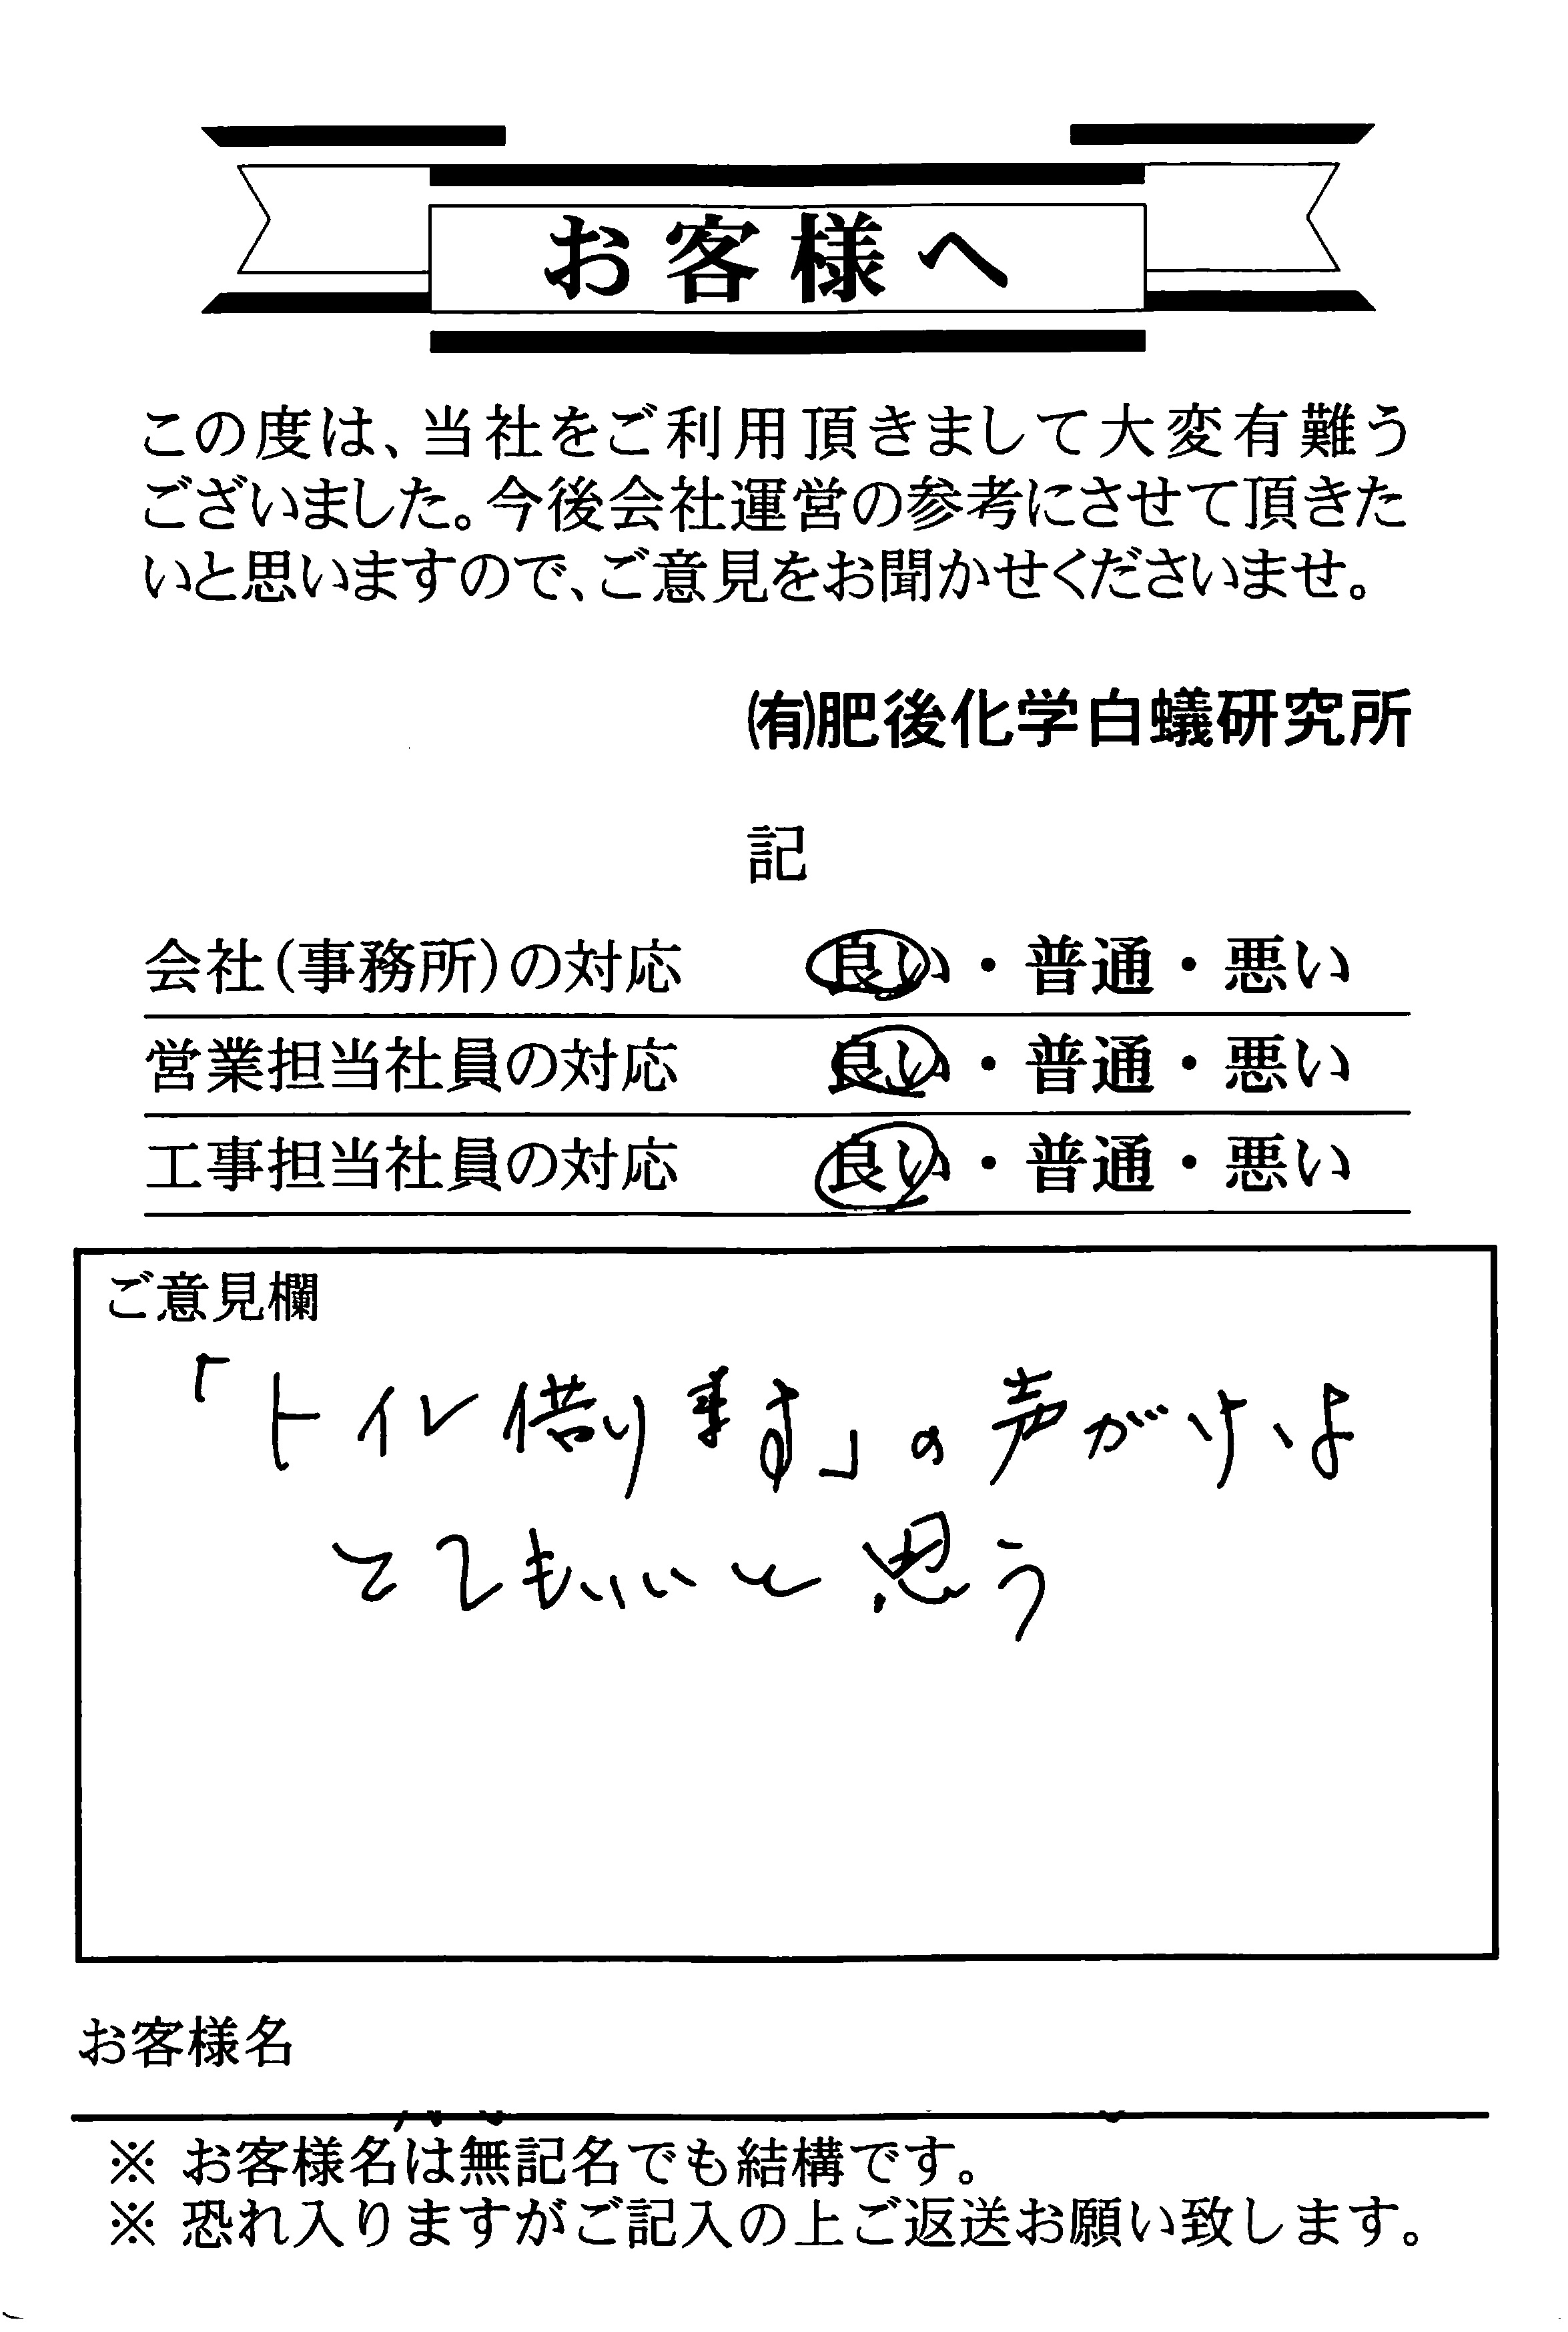 お客様へ
この度は、当社をご利用頂きまして大変有難う
ございました。今後会社運営の参考にさせて頂きた
いと思いますので、ご意見をお聞かせくださいませ。
㈲肥後化学白蟻研究所
記
会社(事務所)の対応 良い・普通・悪い
営業担当社員の対応 良い・普通・悪い
工事担当社員の対応 良い・普通・悪い
ご意見欄
「トイレ借ります」の声がけは
とてもいいと思う
お客様名
※ お客様名は無記名でも結構です。
※ 恐れ入りますがご記入の上ご返送お願い致します。